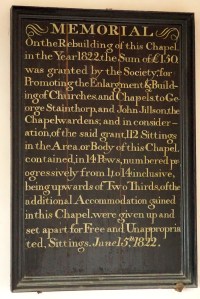 MEMORIAL
On the Rebuilding of this Chapel,
in the Year 1822, the Sum of £150.
was granted by the Society, for
Promoting the Enlargment & Build-
ing of Churches, and Chapels, to Ge-
orge Stainthorp, and John Jillson, the
Chapelwardens; and in consider-
ation, of the said grant, 112 Sittings
in the Area, or Body of this Chapel,
contained, in 14 Pews, numbered pr-
ogressively from 1, to 14 inclusive,
being upwards of Two Thirds, of the
additional Accommodation gained
in this Chapel, were given up and
set apart, for Free and Unappropria-
ted, Sittings. June 15th 1822.